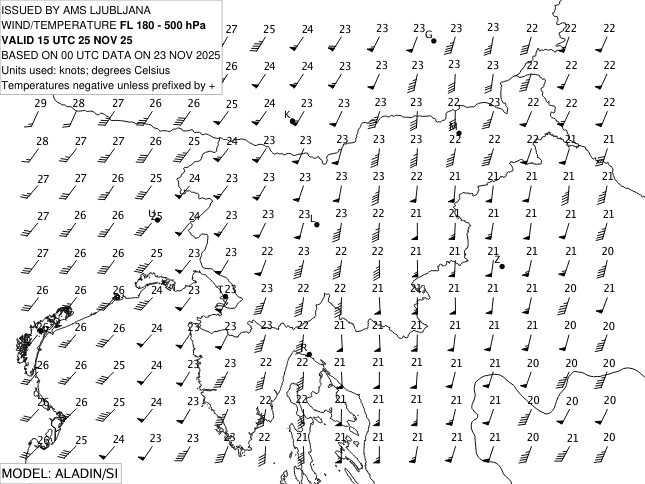 ISSUED BY AMS LJUBLJANA
WIND/TEMPERATURE FL 180 - 500 hPa
VALID 15 UTC 25 NOV 25
BASED ON 00 UTC DATA ON 23 NOV 2025
Units used: knots; degrees Celsius
Temperatures negative unless prefixed by +
27 25 24 23 23 23 23 23 22 22 22
26 24 24 23 23 23 23 22 22 22 22
29 28 27 26 26 25 24 23 23 23 23 22 23 22 22 22
K
G
M
28 27 27 26 26 24 23 23 23 23 23 22 22 22 21 21
27 27 26 25 24 23 23 23 23 22 22 21 21 21 21 21
27 26 26 25 24 23 23 23 23 22 21 21 21 21 21 21
U
L
27 26 26 25 23 23 22 23 22 22 21 21 21 21 21 20
Z
26 26 26 24 23 23 23 22 22 21 21 21 21 21 20 21
T
26 26 26 24 23 23 23 22 21 21 21 21 21 21 20 20
R
26 26 25 24 23 23 22 22 21 21 21 21 21 20 20 20
26 26 25 24 23 23 22 22 21 21 21 21 21 20 20 20
26 25 24 23 23 23 22 21 21 21 21 21 21 20 21 20
MODEL: ALADIN/SI